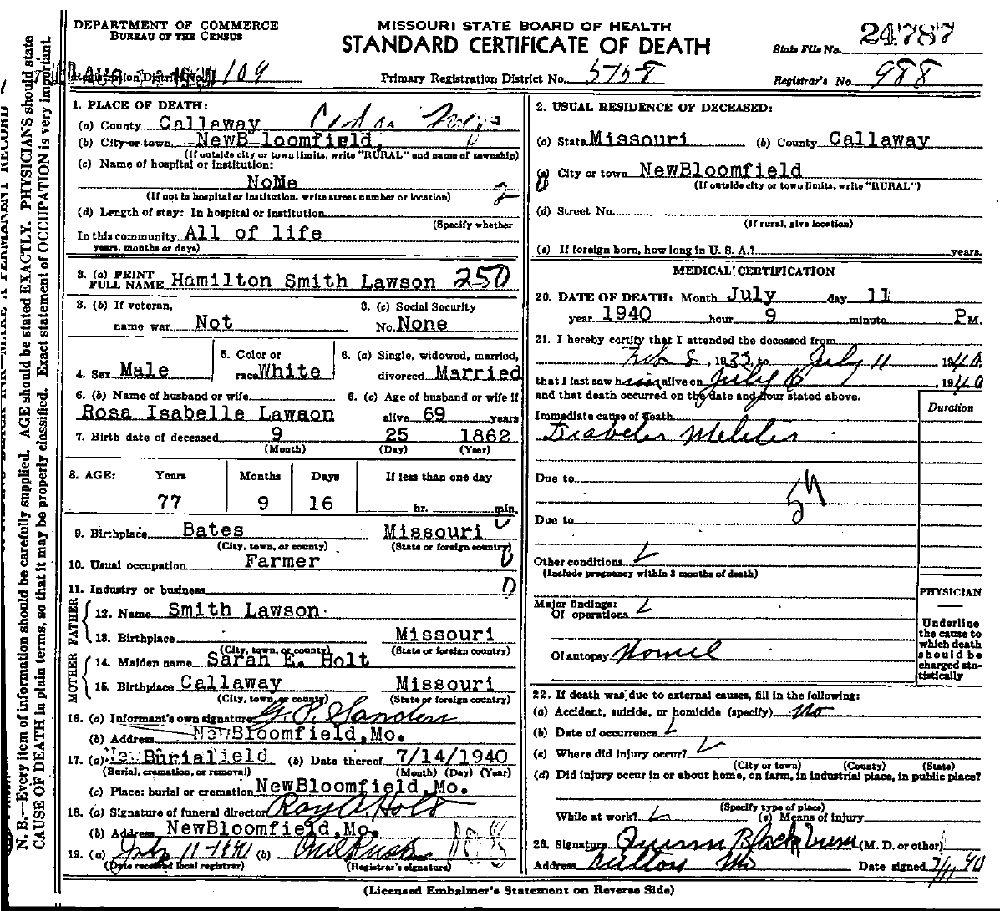 DEPARTMENT OF COMMERCE
BUREAU OF THE CENSUS
MISSOURI STATE BOARD OF HEALTH
STANDARD CERTIFICATE OF DEATH
State File No. 24787
Registration District No. 109
Primary Registration District No. 5758
Registrar's No. 988
N. B.—Every item of information should be carefully supplied. AGE should be stated EXACTLY. PHYSICIANS should state
CAUSE OF DEATH in plain terms, so that it may be properly classified. Exact statement of OCCUPATION is very important.
1. PLACE OF DEATH:
(a) County Callaway
(b) City or town NewB loomfield,
(If outside city or town limits, write "RURAL" and name of township)
(c) Name of hospital or institution:
NoNe 2
(If not in hospital or institution, write street number or location)
(d) Length of stay: In hospital or institution
(Specify whether
In this community All of life
years, months or days)
3. (a) PRINT
FULL NAME Hamilton Smith Lawson 250
3. (b) If veteran,
name war Not
3. (c) Social Security
No. None
4. Sex Male
5. Color or
race White
6. (a) Single, widowed, married,
divorced Married
6. (b) Name of husband or wife
Rosa Isabelle Lawson
6. (c) Age of husband or wife if
alive 69 years
7. Birth date of deceased 9 25 1862
(Month) (Day) (Year)
8. AGE: Years Months Days If less than one day
77 9 16 hr. min.
9. Birthplace Bates Missouri
(City, town, or county) (State or foreign country)
10. Usual occupation Farmer
11. Industry or business
FATHER
12. Name Smith Lawson
13. Birthplace Missouri
(City, town, or county) (State or foreign country)
MOTHER
14. Maiden name Sarah E. Holt
15. Birthplace Callaway Missouri
(City, town, or county) (State or foreign country)
16. (a) Informant's own signature G. P. Sanders
(b) Address NewBloomfield, Mo.
17. (a) Burial (b) Date thereof 7/14/1940
(Burial, cremation, or removal) (Month) (Day) (Year)
(c) Place: burial or cremation NewBloomfield, Mo.
18. (a) Signature of funeral director Ray A. Holt
(b) Address NewBloomfield, Mo.
19. (a) July 11-1940 (b)
(Date received local registrar) (Registrar's signature)
2. USUAL RESIDENCE OF DECEASED:
(a) State Missouri (b) County Callaway
(c) City or town NewBloomfield
(If outside city or town limits, write "RURAL")
(d) Street No.
(If rural, give location)
(e) If foreign born, how long in U. S. A.? years.
MEDICAL CERTIFICATION
20. DATE OF DEATH: Month July day 11
year 1940 hour 9 minute P M.
21. I hereby certify that I attended the deceased from
Feb 8, 1933, to July 11 1940
that I last saw him alive on July 8 1940
and that death occurred on the date and hour stated above.
Duration
Immediate cause of death
Diabetes Melitis
Due to
Due to
Other conditions
(Include pregnancy within 3 months of death)
PHYSICIAN
Underline
the cause to
which death
should be
charged sta-
tistically
Major findings:
Of operations
Of autopsy None
22. If death was due to external causes, fill in the following:
(a) Accident, suicide, or homicide (specify) No
(b) Date of occurrence
(c) Where did injury occur?
(City or town) (County) (State)
(d) Did injury occur in or about home, on farm, in industrial place, in public place?
(Specify type of place)
While at work? (e) Means of injury
23. Signature Blackburn (M. D. or other)
Address Fulton Mo Date signed 7/11/40
(Licensed Embalmer's Statement on Reverse Side)